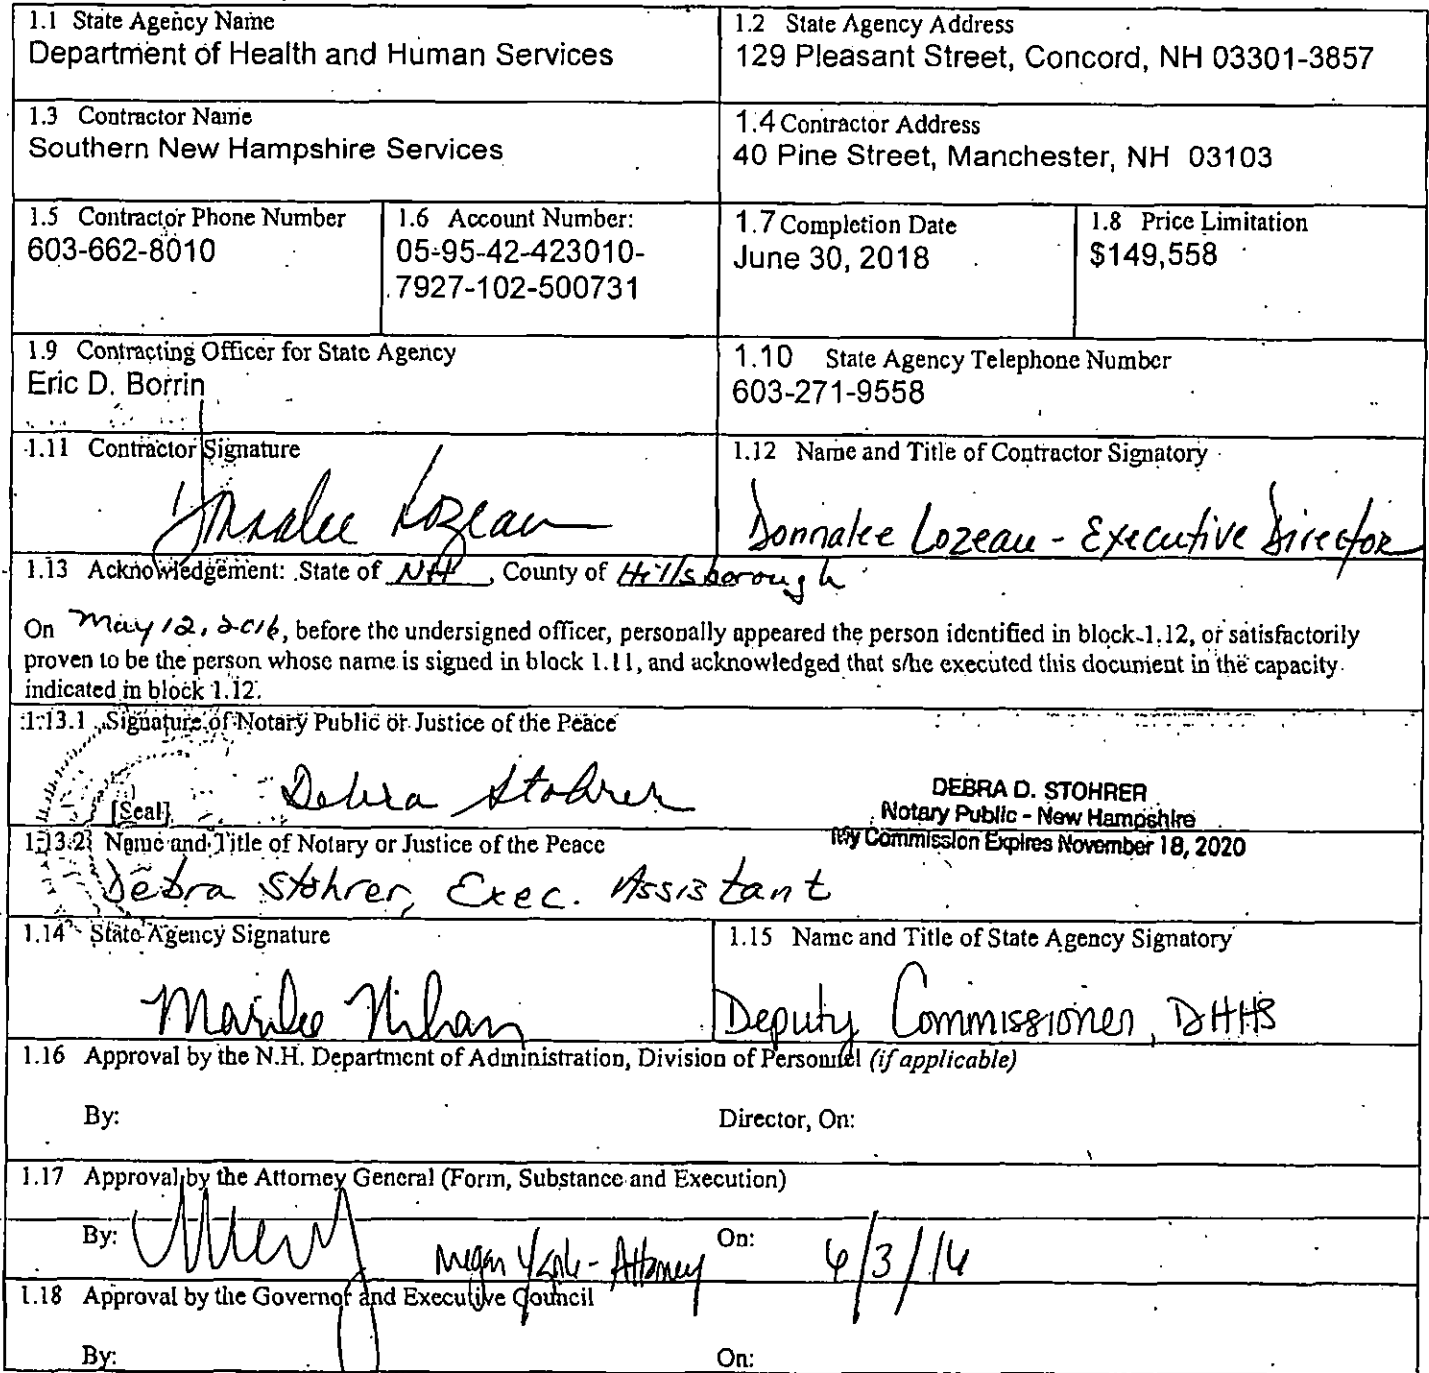 1.1 State Agency Name
Department of Health and Human Services
1.2 State Agency Address
129 Pleasant Street, Concord, NH 03301-3857
1.3 Contractor Name
Southern New Hampshire Services
1.4 Contractor Address
40 Pine Street, Manchester, NH 03103
1.5 Contractor Phone Number
603-662-8010
1.6 Account Number:
05-95-42-423010-
7927-102-500731
1.7 Completion Date
June 30, 2018
1.8 Price Limitation
$149,558
1.9 Contracting Officer for State Agency
Eric D. Borrin
1.10 State Agency Telephone Number
603-271-9558
1.11 Contractor Signature
Donnalee Lozeau
1.12 Name and Title of Contractor Signatory
Donnalee Lozeau - Executive Director
1.13 Acknowledgement: State of NH, County of Hillsborough
On May 12, 2016, before the undersigned officer, personally appeared the person identified in block 1.12, or satisfactorily
proven to be the person whose name is signed in block 1.11, and acknowledged that s/he executed this document in the capacity
indicated in block 1.12.
1.13.1 Signature of Notary Public or Justice of the Peace
Debra Stohrer
[Seal]
DEBRA D. STOHRER
Notary Public - New Hampshire
My Commission Expires November 18, 2020
1.13.2 Name and Title of Notary or Justice of the Peace
Debra Stohrer, Exec. Assistant
1.14 State Agency Signature
Marilee Nihan
1.15 Name and Title of State Agency Signatory
Deputy Commissioner, DHHS
1.16 Approval by the N.H. Department of Administration, Division of Personnel (if applicable)
By:
Director, On:
1.17 Approval by the Attorney General (Form, Substance and Execution)
By: Megan - Attorney On: 6/3/16
1.18 Approval by the Governor and Executive Council
By:
On: